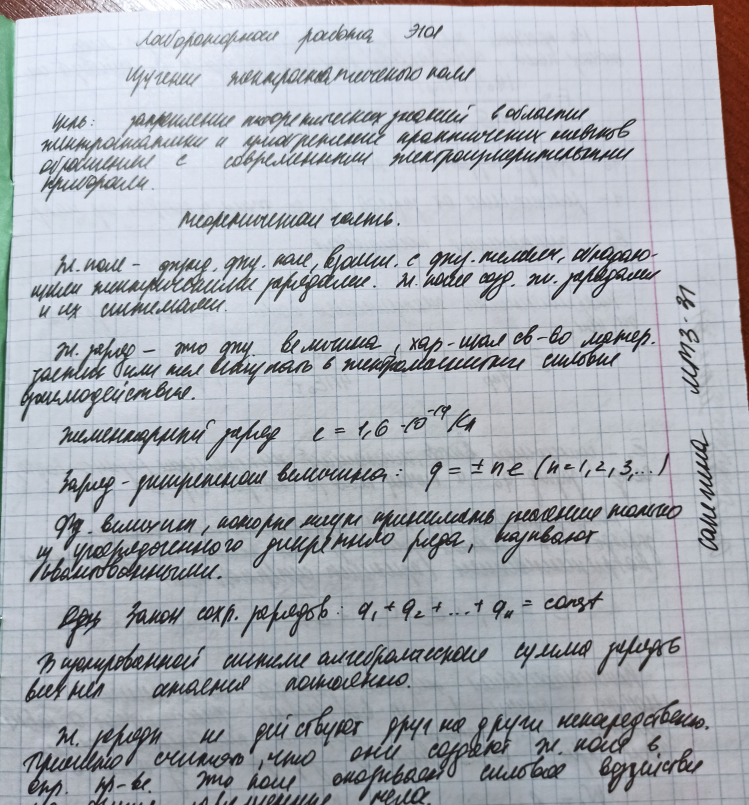 Лабораторная работа Э101
Изучение электростатического поля
Цель: закрепление теоретических знаний в области
электростатики и приобретение практических навыков
обращения с современными электроизмерительными
приборами.
Теоретическая часть.
Эл. поле – физ. поле, взаим. с физ. телами, обладаю-
щими электрическими зарядами. Эл. поле созд. эл. зарядами
и их системами.
Эл. заряд – это физ. величина, хар-щая св-во матер.
частиц или тел вступать в электромагнитные силовые
взаимодействия.
Элементарный заряд e = 1,6 · 10⁻¹⁹ Кл
Заряд – дискретная величина: q = ± ne (n = 1, 2, 3, ...)
Физ. величины, которые могут принимать значение только
из упорядоченного дискретного ряда, называют
квантованными.
Закон сохр. зарядов: q₁ + q₂ + ... + qₙ = const
В изолированной системе алгебраическая сумма зарядов
всех тел остается постоянной.
Эл. заряды не действуют друг на друга непосредственно.
Принято считать, что они создают эл. поле в
окр. пр-ве. Это поле оказывает силовое воздействие
на другие заряженные тела.
МТЗ-31